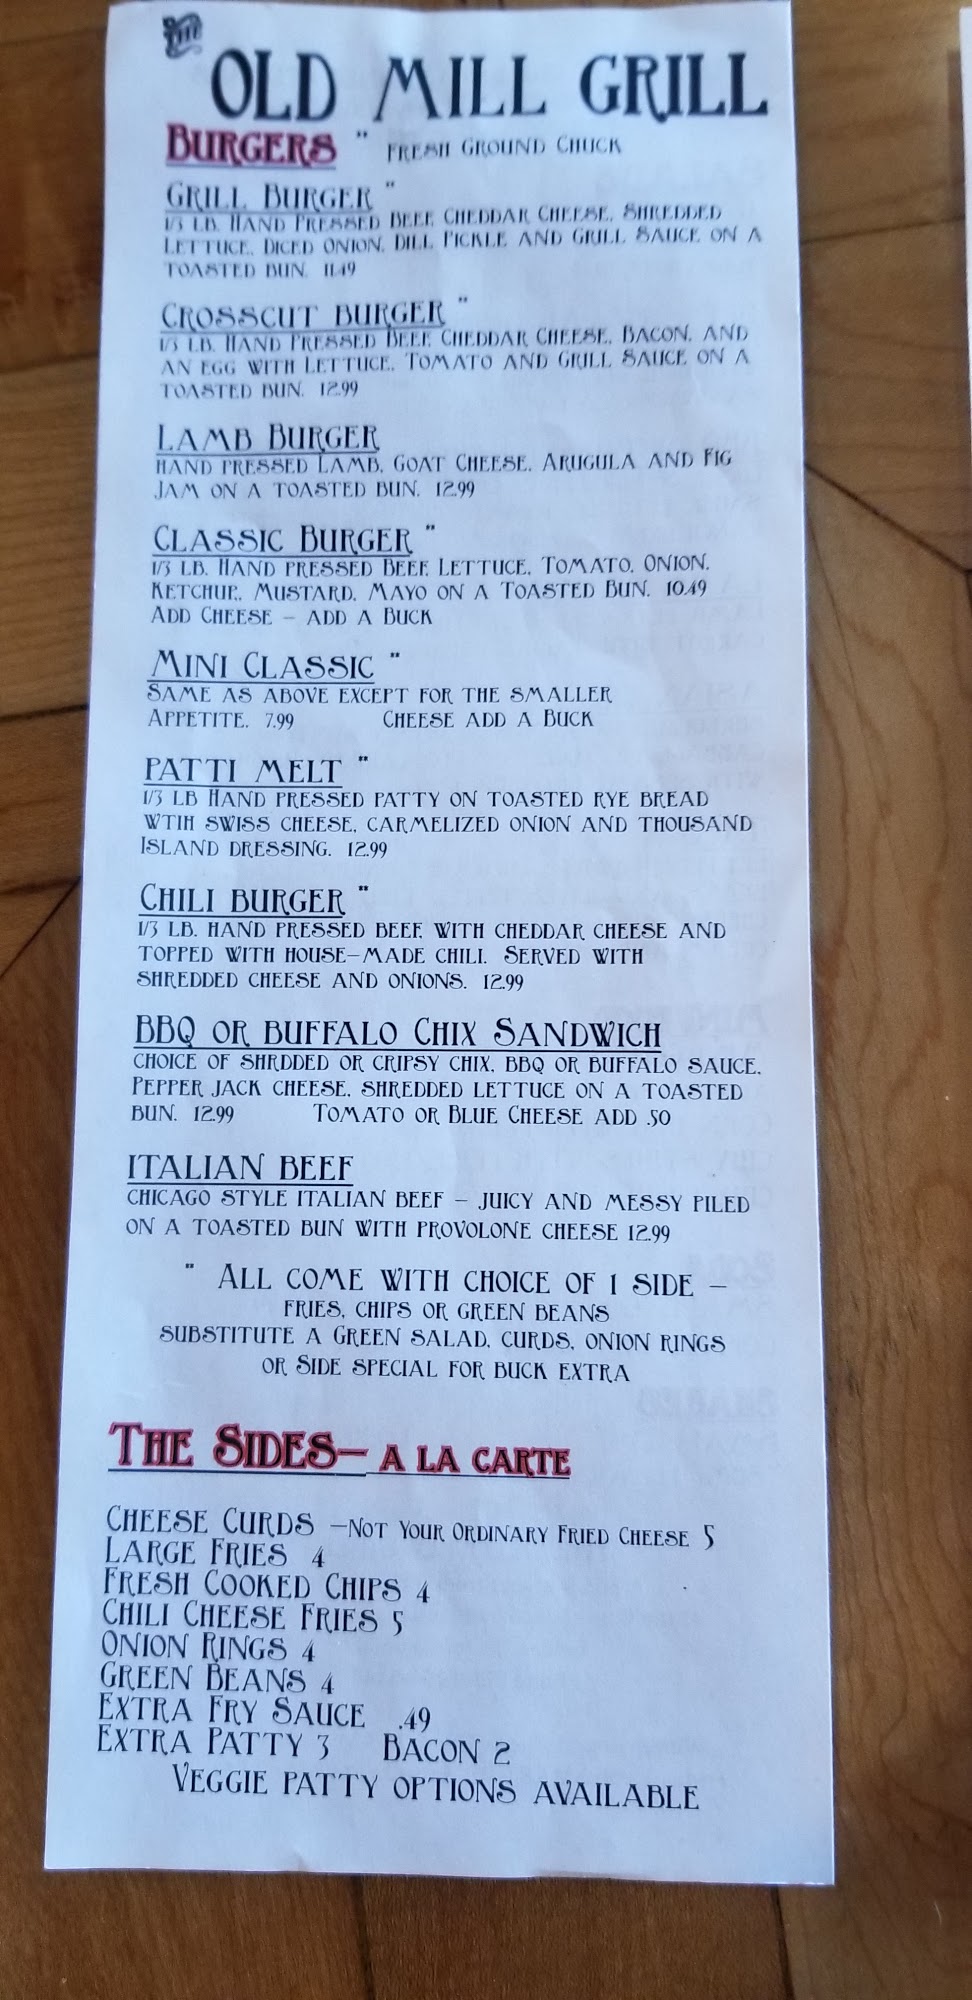 THE
OLD MILL GRILL
BURGERS " FRESH GROUND CHUCK
GRILL BURGER "
1/3 LB. HAND PRESSED BEEF, CHEDDAR CHEESE, SHREDDED
LETTUCE, DICED ONION, DILL PICKLE AND GRILL SAUCE ON A
TOASTED BUN. 11.49
CROSSCUT BURGER "
1/3 LB. HAND PRESSED BEEF, CHEDDAR CHEESE, BACON, AND
AN EGG WITH LETTUCE, TOMATO AND GRILL SAUCE ON A
TOASTED BUN. 12.99
LAMB BURGER
HAND PRESSED LAMB, GOAT CHEESE, ARUGULA AND FIG
JAM ON A TOASTED BUN. 12.99
CLASSIC BURGER "
1/3 LB. HAND PRESSED BEEF, LETTUCE, TOMATO, ONION,
KETCHUP, MUSTARD, MAYO ON A TOASTED BUN. 10.49
ADD CHEESE – ADD A BUCK
MINI CLASSIC "
SAME AS ABOVE EXCEPT FOR THE SMALLER
APPETITE. 7.99 CHEESE ADD A BUCK
PATTI MELT "
1/3 LB HAND PRESSED PATTY ON TOASTED RYE BREAD
WTIH SWISS CHEESE, CARMELIZED ONION AND THOUSAND
ISLAND DRESSING. 12.99
CHILI BURGER "
1/3 LB. HAND PRESSED BEEF, WITH CHEDDAR CHEESE AND
TOPPED WITH HOUSE-MADE CHILI. SERVED WITH
SHREDDED CHEESE AND ONIONS. 12.99
BBQ OR BUFFALO CHIX SANDWICH
CHOICE OF SHRDDED OR CRIPSY CHIX, BBQ OR BUFFALO SAUCE,
PEPPER JACK CHEESE, SHREDDED LETTUCE ON A TOASTED
BUN. 12.99 TOMATO OR BLUE CHEESE ADD .50
ITALIAN BEEF
CHICAGO STYLE ITALIAN BEEF – JUICY AND MESSY PILED
ON A TOASTED BUN WITH PROVOLONE CHEESE 12.99
" ALL COME WITH CHOICE OF 1 SIDE –
FRIES, CHIPS OR GREEN BEANS
SUBSTITUTE A GREEN SALAD, CURDS, ONION RINGS
OR SIDE SPECIAL FOR BUCK EXTRA
THE SIDES– A LA CARTE
CHEESE CURDS –NOT YOUR ORDINARY FRIED CHEESE 5
LARGE FRIES 4
FRESH COOKED CHIPS 4
CHILI CHEESE FRIES 5
ONION RINGS 4
GREEN BEANS 4
EXTRA FRY SAUCE .49
EXTRA PATTY 3 BACON 2
VEGGIE PATTY OPTIONS AVAILABLE